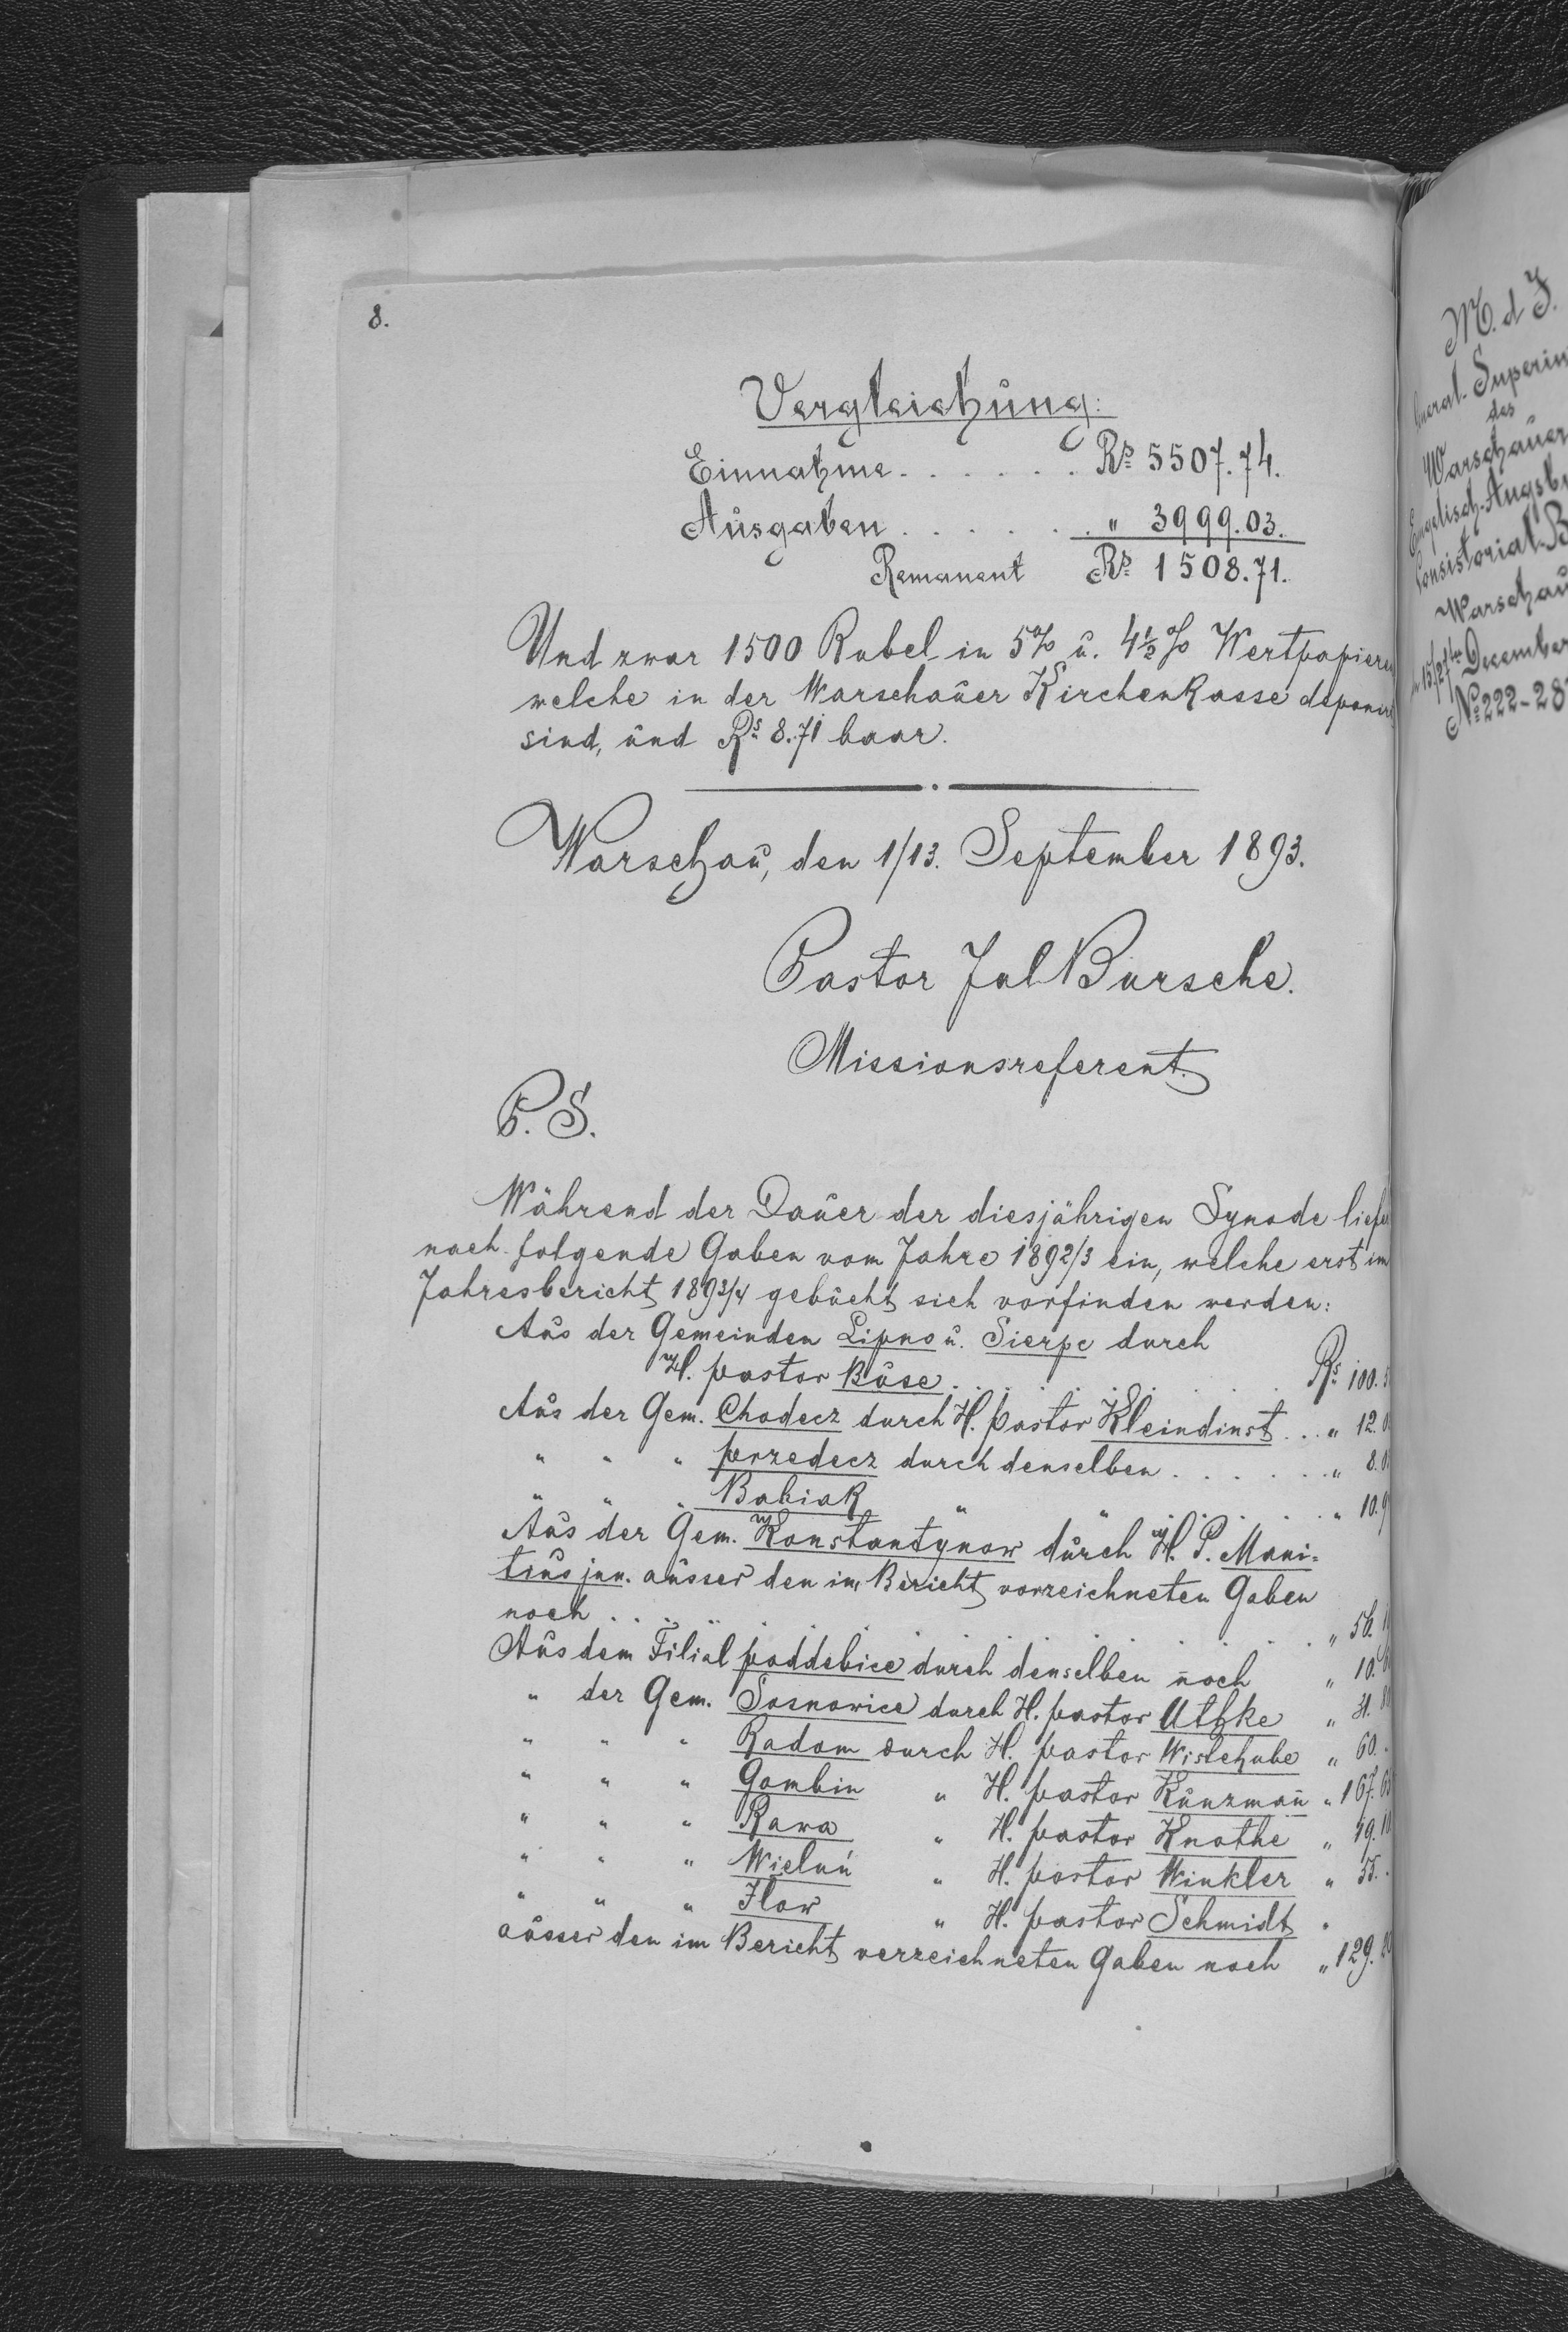 8.
Vergleichung:
Einnahme . . . . . . . Rs 5507.74.
Ausgaben . . . . . . . " 3999.03.
Remanent Rs 1508.71.
Und zwar 1500 Rubel in 5% u. 4½% Wertpapieren
welche in der Warschauer Kirchenkasse deponirt
sind, und Rs 8.71 baar.
Warschau, den 1/13. September 1893.
Pastor Jul Bursche.
Missionsreferent.
P. S.
Während der Dauer der diesjährigen Synode liefen
noch folgende Gaben vom Jahre 1892/3 ein, welche erst im
Jahresbericht 1893/4 gebucht sich vorfinden werden:
Aus der Gemeinden Lipno u. Sierpc durch
H. pastor Büse . . . . . . . . Rs 100.5
Aus der Gem. Chodecz durch H. pastor Kleindinst . . . " 12.0
" " " przedecz durch denselben . . . . . . " 8.0
" " " Babiak " " . . . . . " 10.9
Aus der Gem. Konstantynow durch H. P. Mani=
tius jun. ausser den im Bericht vorzeichneten Gaben
noch . . . . . . . . . . . " 56.
Aus dem Filial poddebice durch denselben noch " 10.
" der Gem. Sosnowice durch H. pastor Uthke " 31.
" " " Radom durch H. pastor Wistehube " 60.
" " " Gombin " H. pastor Kunzman̄ " 167.
" " " Rawa " H. pastor Knothe " 19.
" " " Wieluń " H. pastor Winkler " 55.
" " " Ilow " H. pastor Schmidt "
ausser den im Bericht verzeichneten Gaben noch " 129.
M. d J.
General-Superin
des
Warschauer
Evngelisch-Augsb
Consistorial-B
Warschau
15/27ten December
№ 222-28